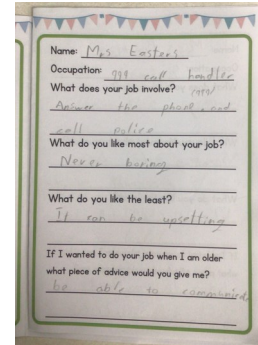 Name: Mrs Easters
Occupation: 999 call handler
What does your job involve?
Answer the phone and
call police
What do you like most about your job?
Never boring
What do you like the least?
It can be upsetting
If I wanted to do your job when I am older
what piece of advice would you give me?
be able to